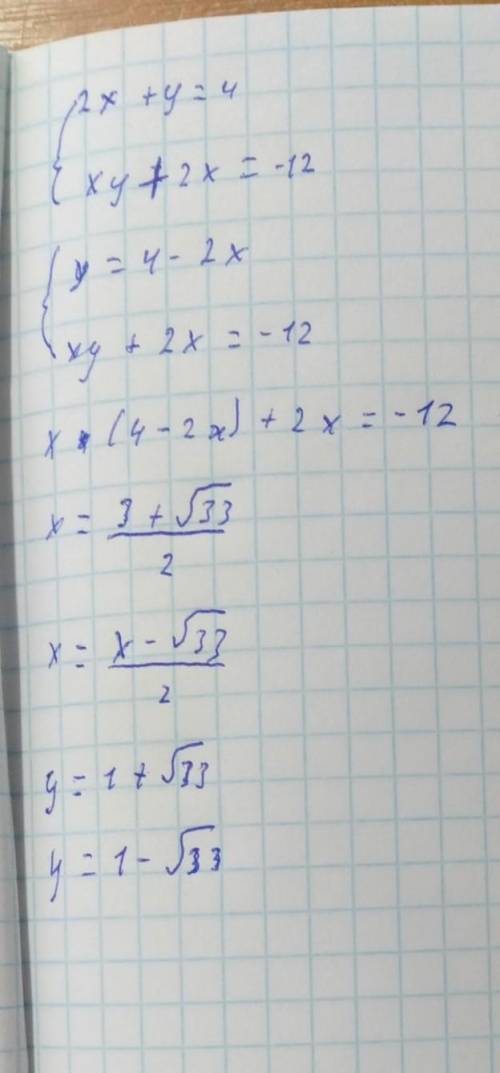 2x + y = 4
xy + 2x = -12
y = 4 - 2x
xy + 2x = -12
x · (4 - 2x) + 2x = -12
x = (3 + √33) / 2
x = (x - √33) / 2
y = 1 + √33
y = 1 - √33